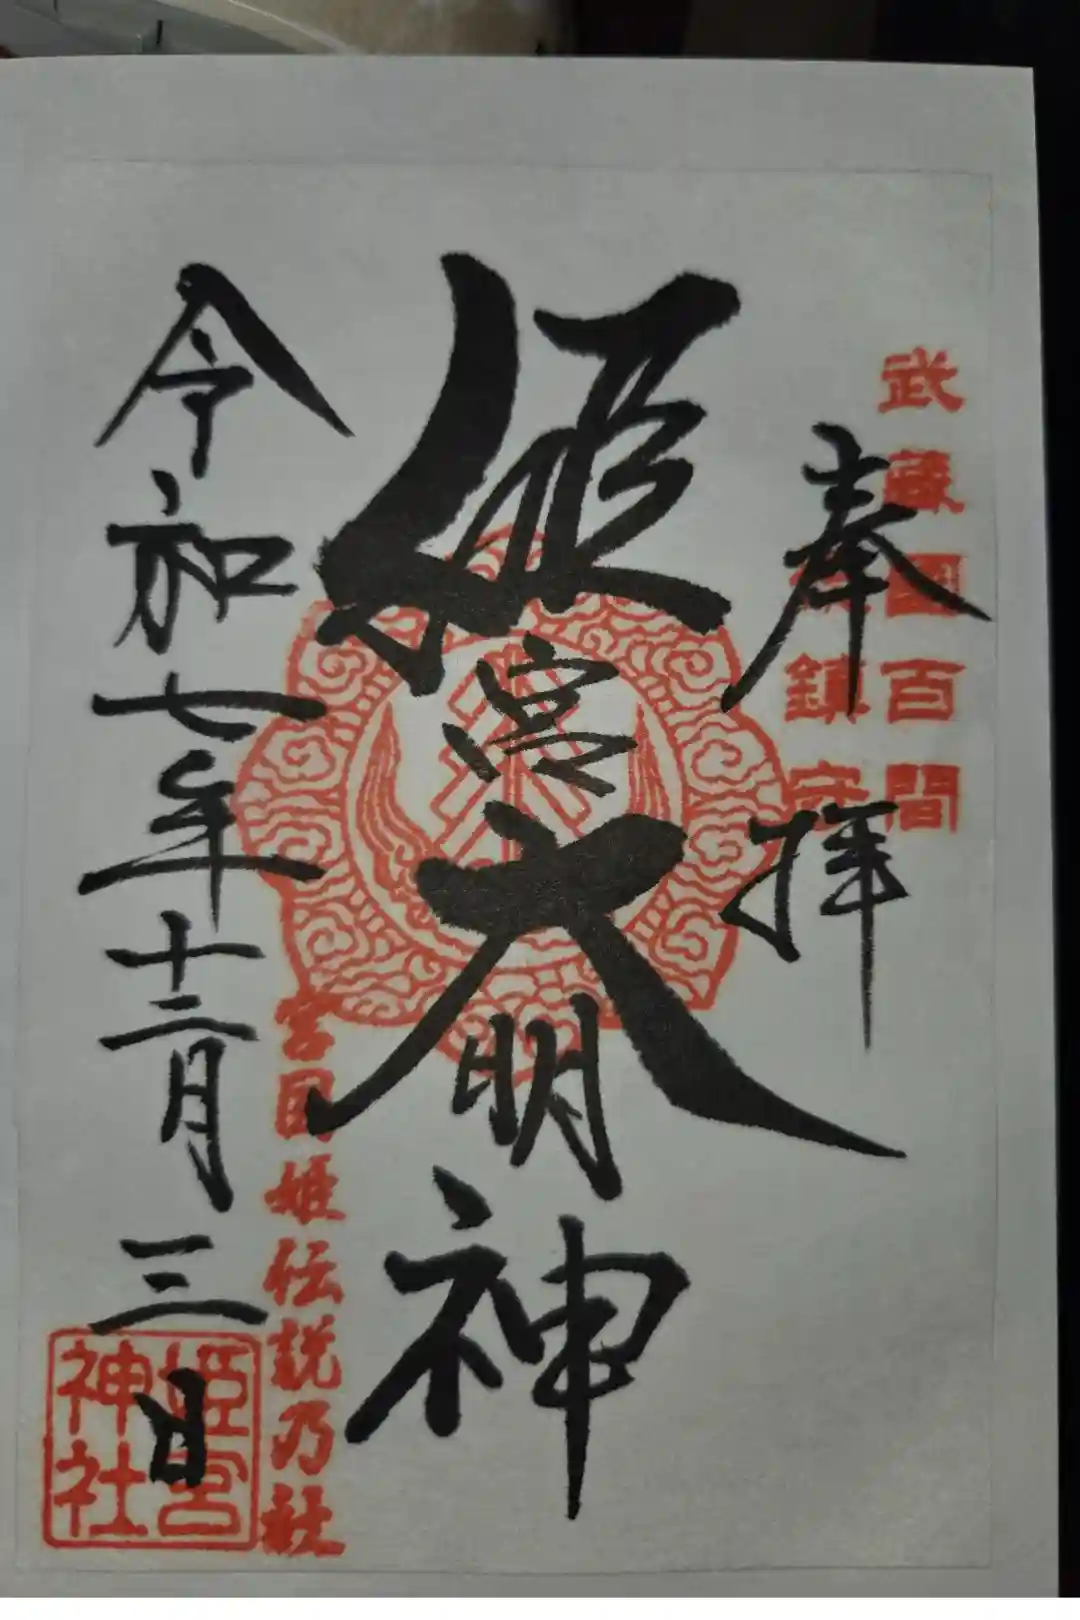 武蔵國百間
総鎮守
奉拝
姫宮大明神
宮目姫伝説乃社
令和七年十二月三日
姫宮
神社